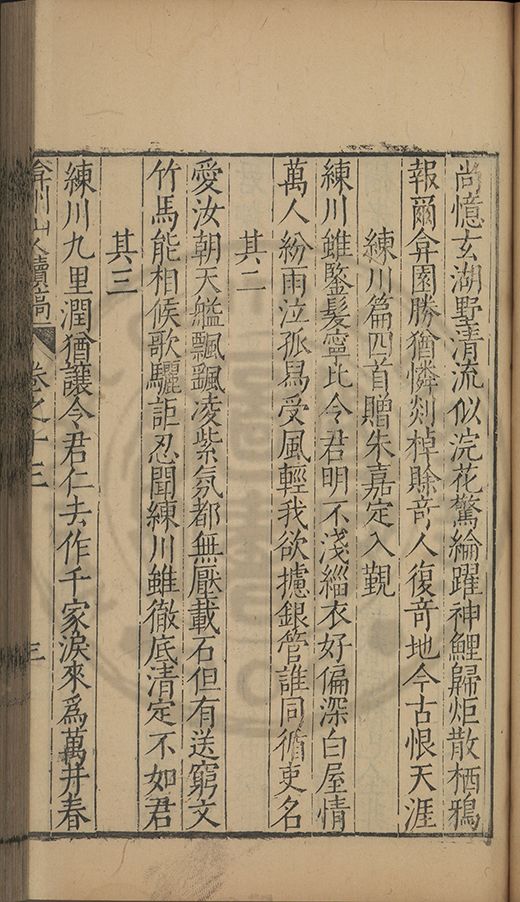 尚憶玄湖墅清流似浣花驚綸躍神鯉歸炬散栖鴉
報爾弇園勝猶憐剡棹賖音人復奇地今古恨天涯
練川篇四首贈朱嘉定入覲
練川雖鑒髮寧比令君明不淺緇衣好偏深白屋情
萬人紛雨泣孤舄受風輕我欲攄銀管誰同循吏名
其二
愛汝朝天艦飄飄凌紫氛都無壓載石但有送窮文
竹馬能相候歌驪詎忍聞練川雖徹底清定不如君
其三
練川九里潤猶讓令君仁去作千家淚來爲萬井春
弇州山人續稿 卷之十三 三